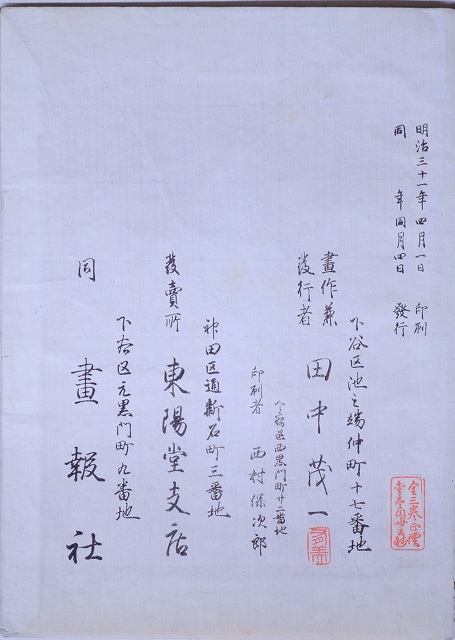 明治三十一年四月一日印刷
同年同月四日發行
下谷区池之端仲町十七番地
畫作兼
發行者
田中茂一
下谷区西黒門町廿二番地
印刷者 西村保次郎
神田区通新石町三番地
發賣所 東陽堂支店
下谷区元黒門町九番地
同 畫報社
全三巻正價